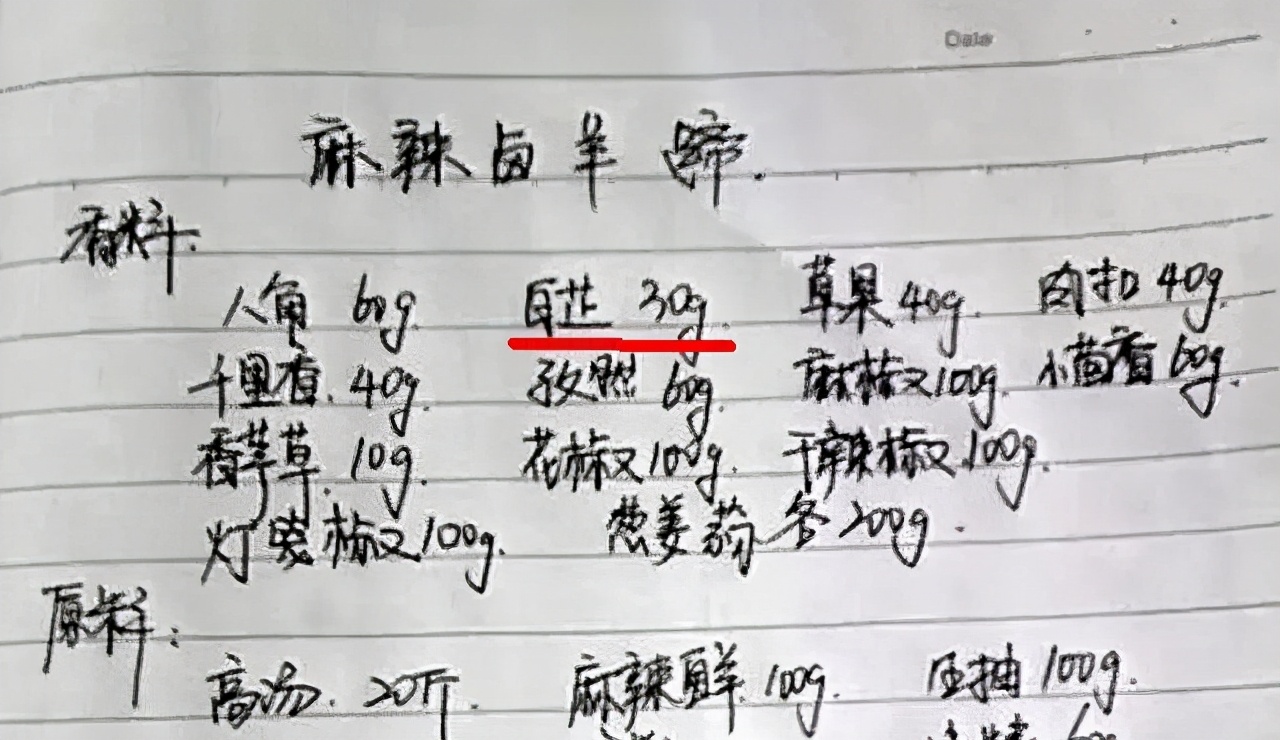 Date
麻辣卤羊蹄.
香料.
八角 60g. 白芷 30g. 草果 40g. 肉扣 40g.
千里香. 40g. 孜然 60g. 麻椒100g 小茴香 60g.
香茅草. 10g. 花椒100g. 干辣椒100g.
灯笼椒100g. 葱姜蒜各200g.
原料:
高汤. 20斤. 麻辣鲜 100g. 生抽 100g.
60g